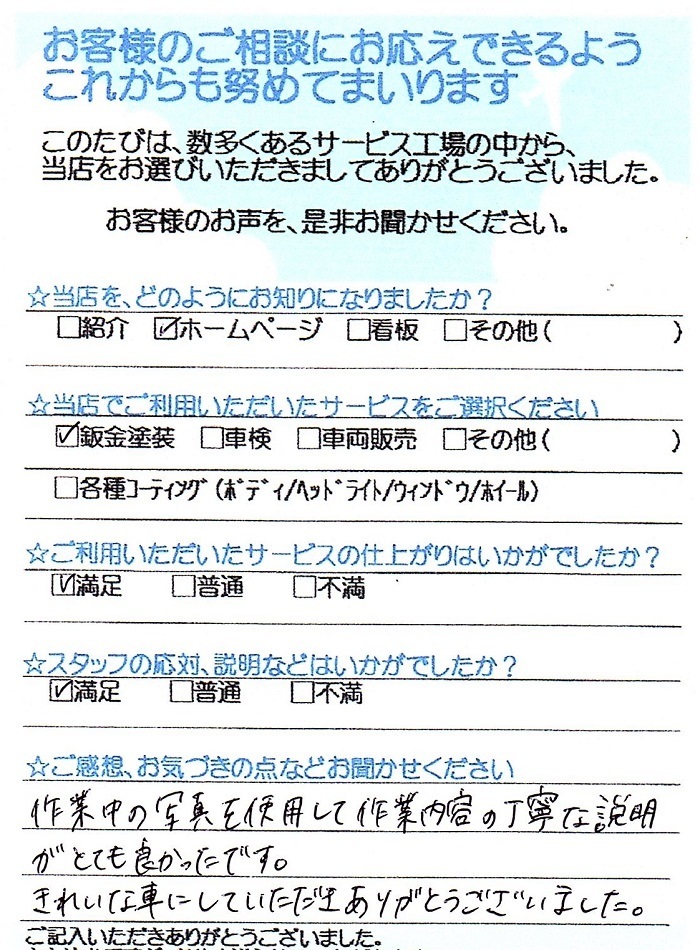 お客様のご相談にお応えできるよう
これからも努めてまいります
このたびは、数多くあるサービス工場の中から、
当店をお選びいただきましてありがとうございました。
お客様のお声を、是非お聞かせください。
☆当店を、どのようにお知りになりましたか？
□紹介 ☑ホームページ □看板 □その他( )
☆当店でご利用いただいたサービスをご選択ください
☑鈑金塗装 □車検 □車両販売 □その他( )
□各種ｺｰﾃｨﾝｸﾞ(ﾎﾞﾃﾞｨ/ﾍｯﾄﾞﾗｲﾄ/ｳｨﾝﾄﾞｳ/ﾎｲｰﾙ)
☆ご利用いただいたサービスの仕上がりはいかがでしたか？
☑満足 □普通 □不満
☆スタッフの応対、説明などはいかがでしたか？
☑満足 □普通 □不満
☆ご感想、お気づきの点などお聞かせください
作業中の写真を使用して作業内容の丁寧な説明
がとても良かったです。
きれいな車にしていただきありがとうございました。
ご記入いただきありがとうございました。